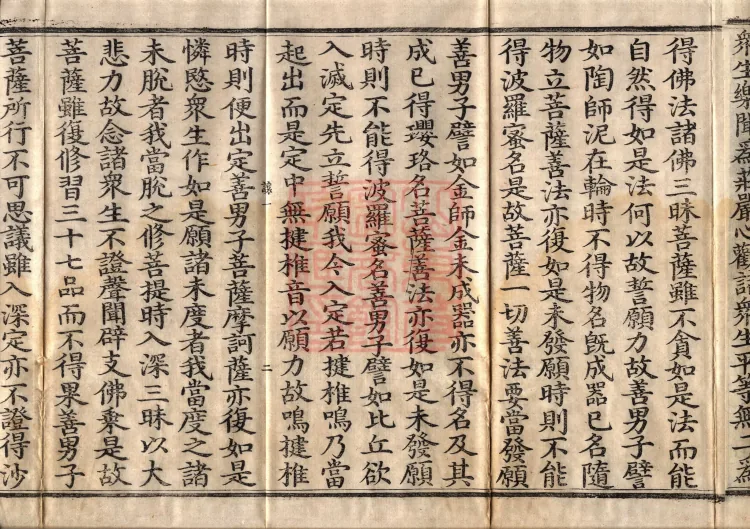 衆生樂聞器莊嚴心觀諸衆生平等無二爲
得佛法諸佛三昧菩薩雖不貪如是法而能
自然得如是法何以故誓願力故善男子譬
如陶師泥在輪時不得物名旣成器已名隨
物立菩薩善法亦復如是未發願時則不能
得波羅蜜名是故菩薩一切善法要當發願
善男子譬如金師金未成器亦不得名及其
成已得瓔珞名菩薩善法亦復如是未發願
時則不能得波羅蜜名善男子譬如比丘欲
入滅定先立誓願我今入定若揵椎鳴乃當
起出而是定中無揵椎音以願力故鳴揵椎
二
時則便出定善男子菩薩摩訶薩亦復如是
憐愍衆生作如是願諸未度者我當度之諸
未脫者我當脫之修菩提時入深三昧以大
悲力故念諸衆生不證聲聞辟支佛乗是故
菩薩雖復修習三十七品而不得果善男子
菩薩所行不可思議雖入深定亦不證得沙